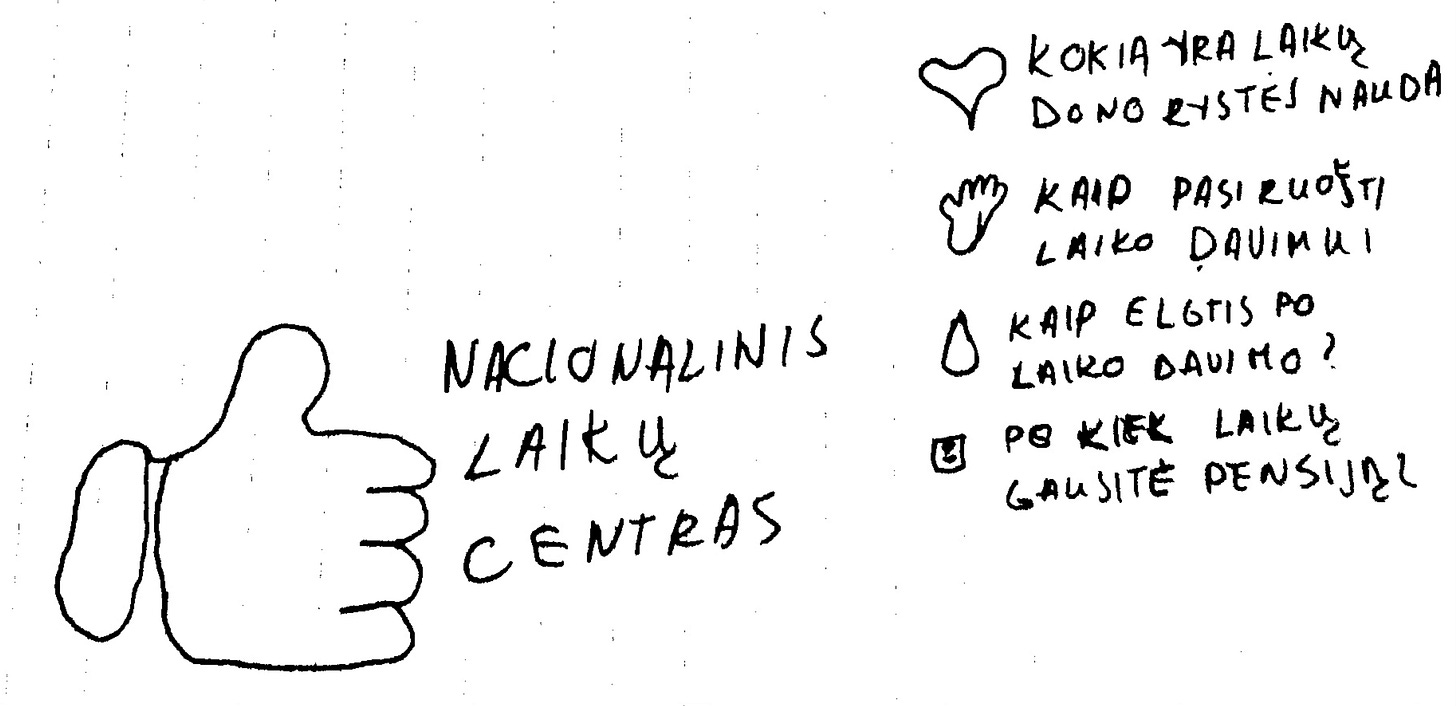 NACIONALINIS
LAIKŲ
CENTRAS
KOKIA YRA LAIKŲ
DONORYSTĖS NAUDA
KAIP PASIRUOŠTI
LAIKO DAVIMUI
KAIP ELGTIS PO
LAIKO DAVIMO?
PO KIEK LAIKŲ
GAUSITĖ PENSIJĄ?